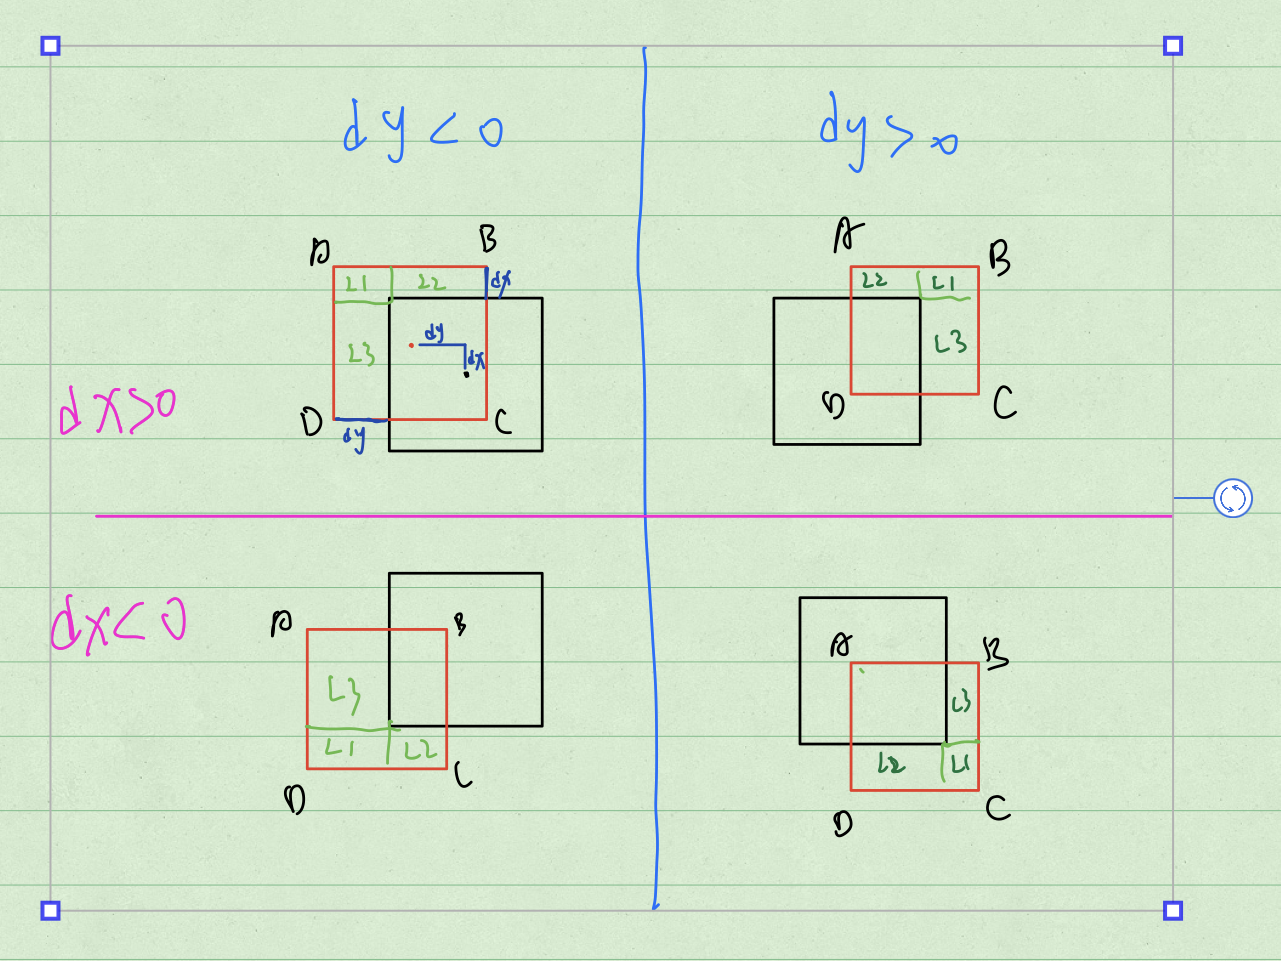 dy < 0
dy > 0
A
B
L1
L2
dx
L3
dy
dx
D
C
dy
dx>0
A
B
L2
L1
L3
D
C
dx<0
A
B
L3
L1
L2
D
C
A
B
L3
L2
L1
D
C